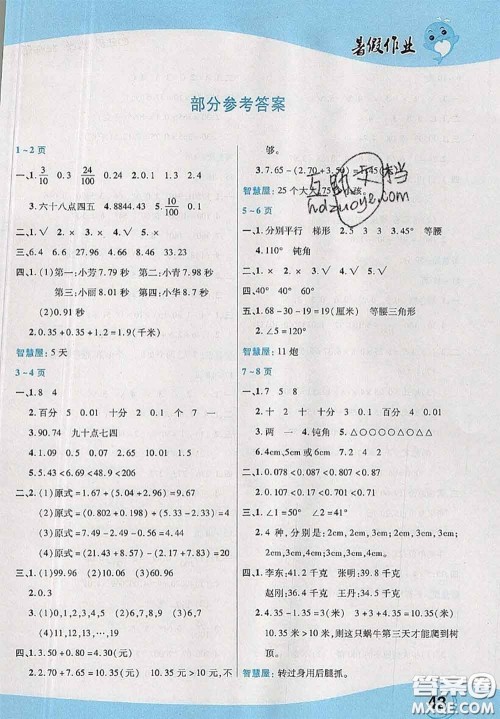 暑假作业
部分参考答案
1~2页
一、1. 3/10 0.3 24/100 0.24 2.0.1 3.0.1
3.六十八点四五 4.8844.43 5.100 0.1
二、1.√ 2.× 3.√ 4.×
三、6.4 6.6 27.96 4.4 8.8 23.04
四、(1)第一:小芳7.49秒 第二:小青7.98秒
第三:小丽8.01秒 第四:小华8.7秒
(2)0.91秒
2.0.35+0.35+1.2=1.9(千米)
智慧屋:5天
3~4页
一、1.8 4
2.百分 5 0.01 十分 2 0.1 个 7 1
3.90.74 九十点七四
4.10.0 0.01
5.5.43<5.46<5.64<6.02<6.20
二、2.(1)原式=1.67+(5.04+2.96)=9.67
(2)原式=(0.802+0.198)+(2.63+3.37)=7
(3)原式=6.85+(4.29+5.71)=16.85
(4)原式=(21.43+8.57)-(7.88+2.12)=20
三、1.(1)99.96 (2)99.96 (3)100.00
2.0.3
3.(1)0,1,2,3,4,5,6,7,8,9
(2)0,1,2,3,4 (3)5,6,7,8,9
(4)11,12,13,…
四、1.3.50+0.80=4.30(元)
2.2.70+7.65=10.35(元) 10.35元>10元,不
够。
3.7.65-(2.70+3.50)=1.45(元)
智慧屋:25个大人,75个小孩。
5~6页
一、1.分别平行 梯形 2.5 3 3.45° 等腰
4.110° 钝角
二、1.√ 2.× 3.√ 4.×
四、40° 60° 40°
五、1.68-30-19=19(厘米) 等腰三角形
2.
智慧屋:11炮
7~8页
一、1.7 5 8
2.十分 10 十 100 3.72
4.2 钝角 5.△○○○○△○△○△
6.4cm,5cm或6cm 7.4 2
二、1.√ 2.√ 3.× 4.√ 5.×
三、1.0.078<0.087<0.78<0.807<0.87
3.∠1=50° ∠2=130°
3.2.4种,分别是:2cm,2cm,3cm;2cm,3cm,
4cm;3cm,3cm,4cm;3cm,3cm,2cm。
四、1.李东:41.6千克 张明:39.8千克
赵刚:36.3千克 王丹:34.5千克
2.4.35-1.35×3=10.35(米)
10.35米>10米,所以这只蜗牛第三天才能爬到树
顶。
智慧屋:转过身用后腿抓。
互助文档
hdzuoye.com
43
答案圈
MXQE.COM